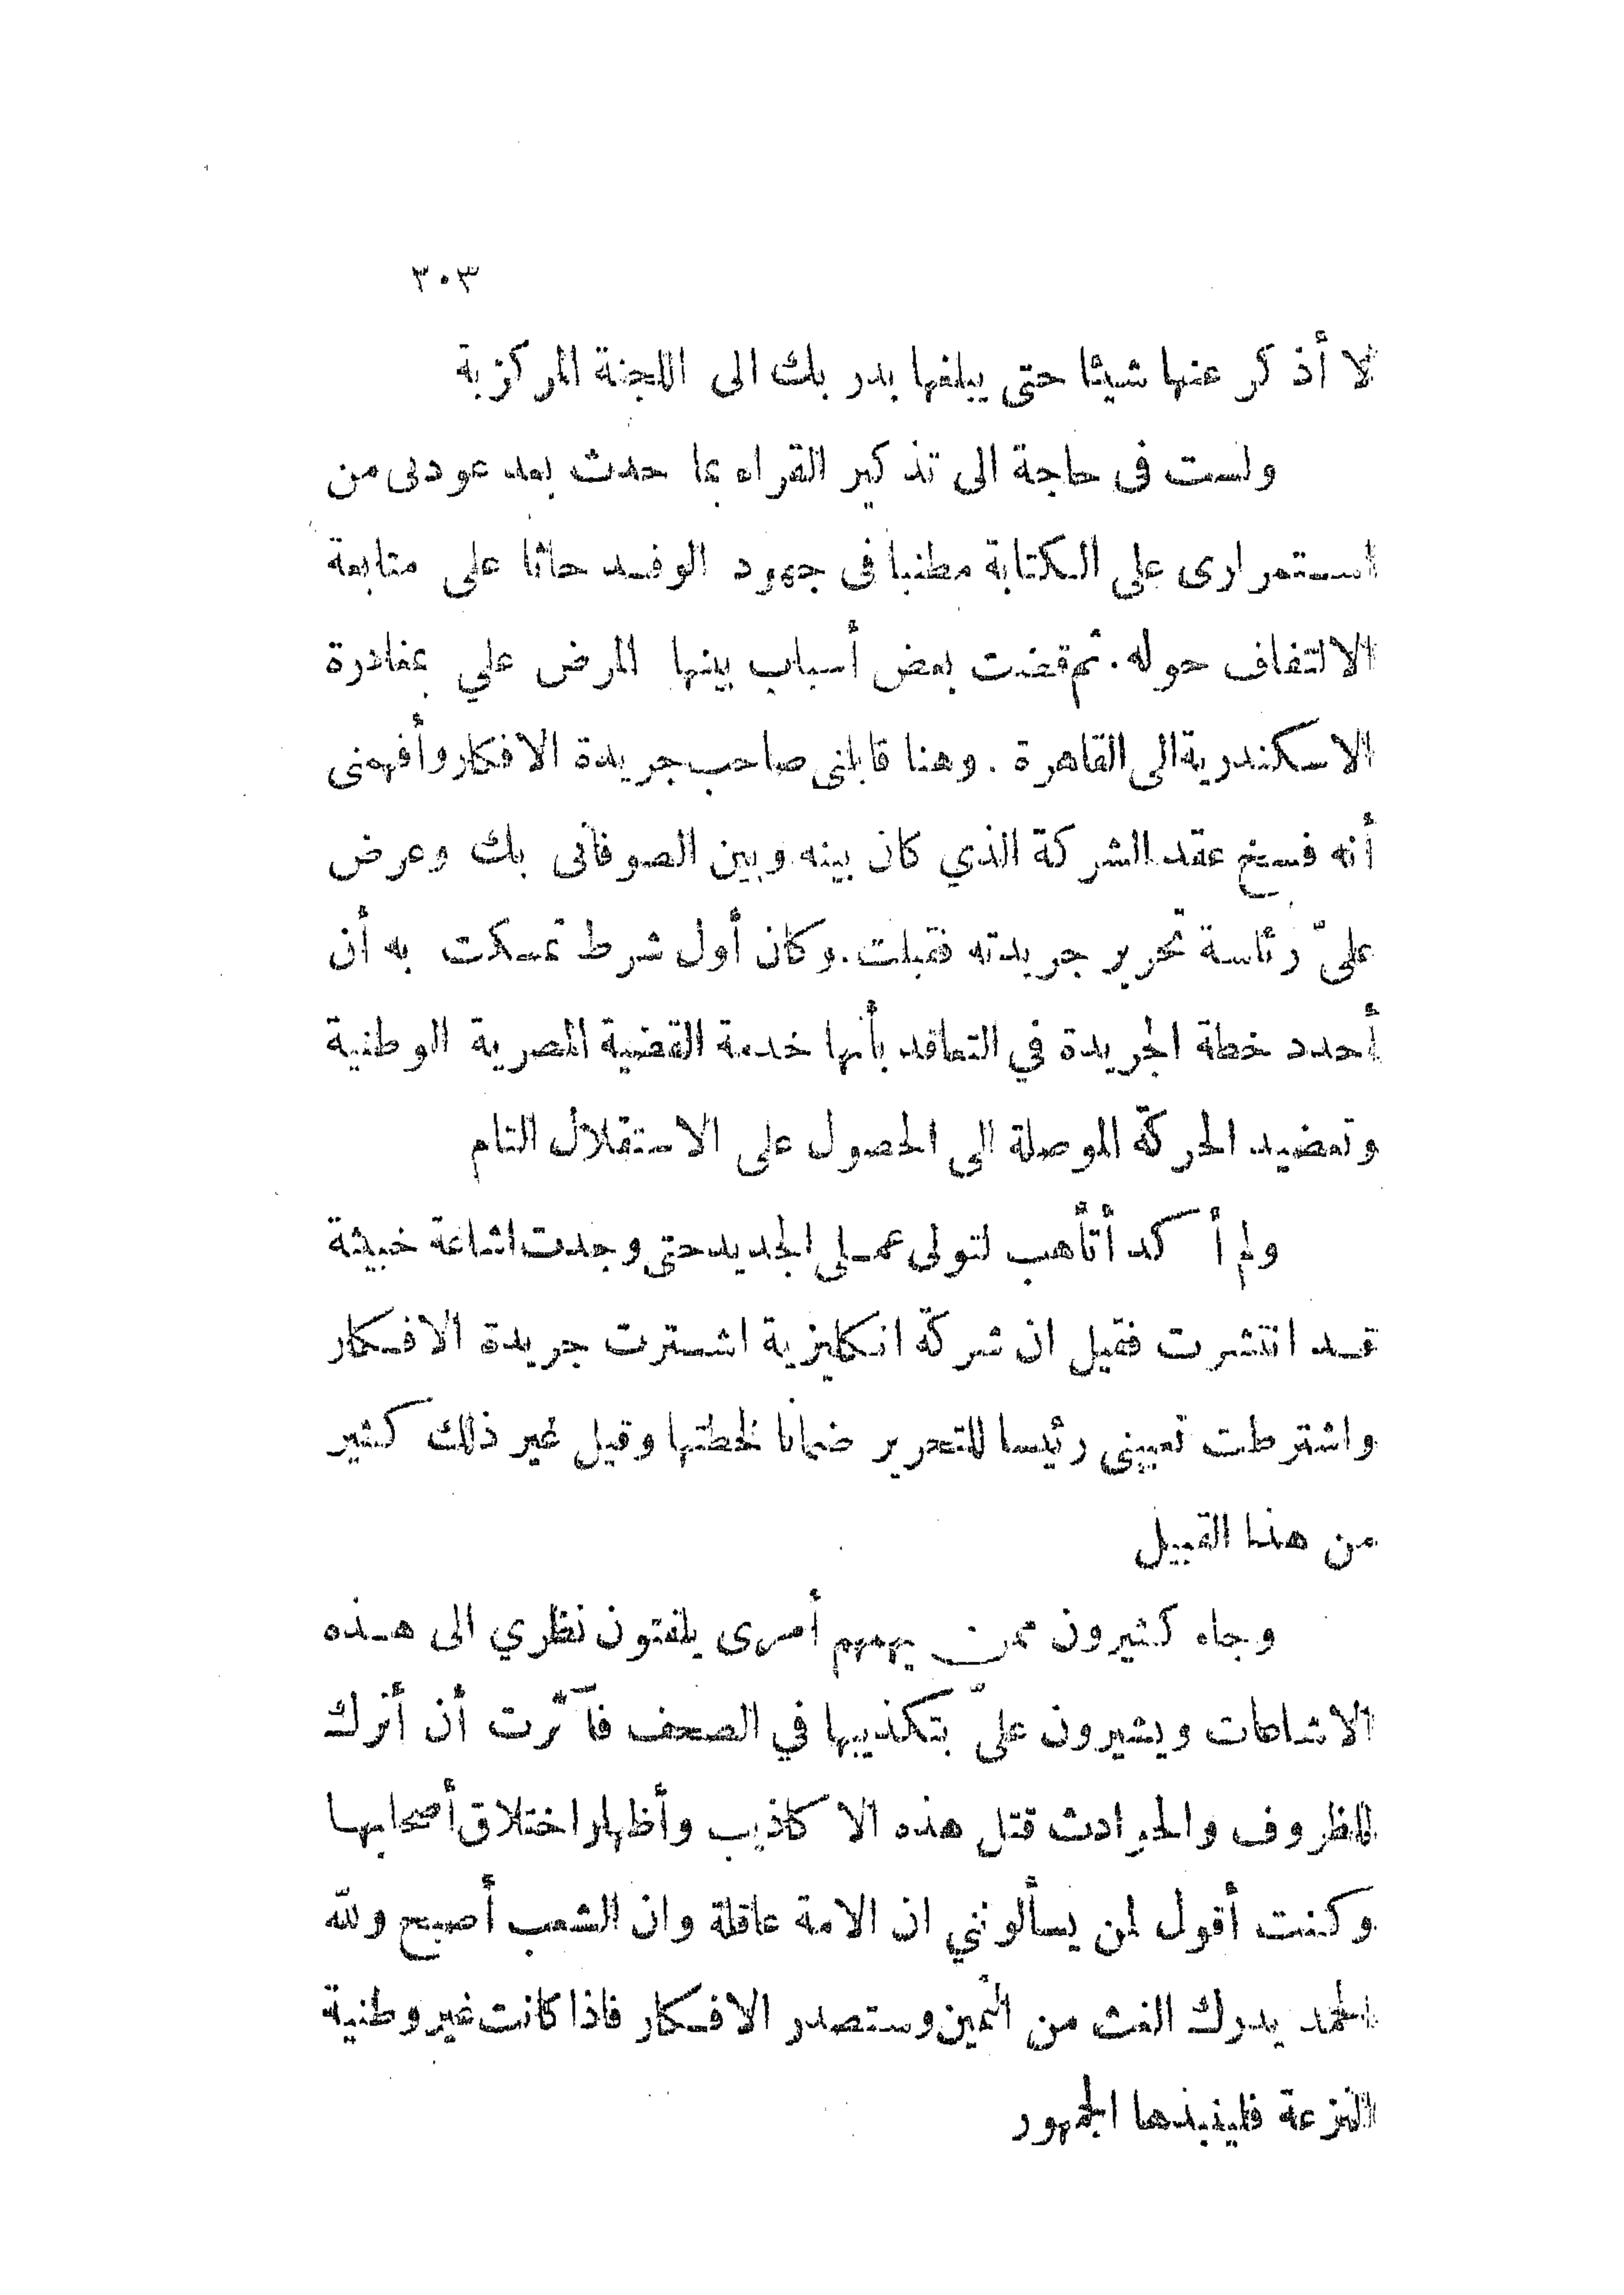 ٣٠٣
لا أذكر عنها شيئا حتى يبلغها بدر بك الى اللجنة المركزية
ولست فى حاجة الى تذكير القراء بما حدث بعد عودتى من
استمرارى على الكتابة مطنبا فى جهود الوفد حاثا على متابعة
الالتفاف حوله. ثم قضت بعض أسباب بينها المرض علي بمغادرة
الاسكندرية الى القاهرة . وهنا قابلنى صاحب جريدة الافكار وأفهمنى
أنه فسخ عقد الشركة الذي كان بينه وبين الصوفانى بك وعرض
علىّ رئاسة تحرير جريدته فقبلت. وكان أول شرط تمسكت به أن
أحدد خطة الجريدة في التعاقد بأنها خدمة القضية المصرية الوطنية
وتعضيد الحركة الموصلة الى الحصول على الاستقلال التام
ولم أكد أتأهب لتولى عملى الجديد حتى وجدت اشاعة خبيثة
قد انتشرت فقيل ان شركة انكليزية اشترت جريدة الافكار
واشترطت تعيينى رئيسا للتحرير ضمانا لخطتها وقيل غير ذلك كثير
من هذا القبيل
وجاء كثيرون ممن يهمهم أمرى يلفتون نظري الى هذه
الاشاعات ويشيرون علىّ بتكذيبها في الصحف فآثرت أن أترك
للظروف والحوادث قتل هذه الاكاذيب وأظهار اختلاق أصحابها
وكنت أقول لمن يسألونني ان الامة عاقلة وان الشعب أصبح ولله
الحمد يدرك الغث من الثمين وستصدر الافكار فاذا كانت غير وطنية
النزعة فلينبذها الجمهور